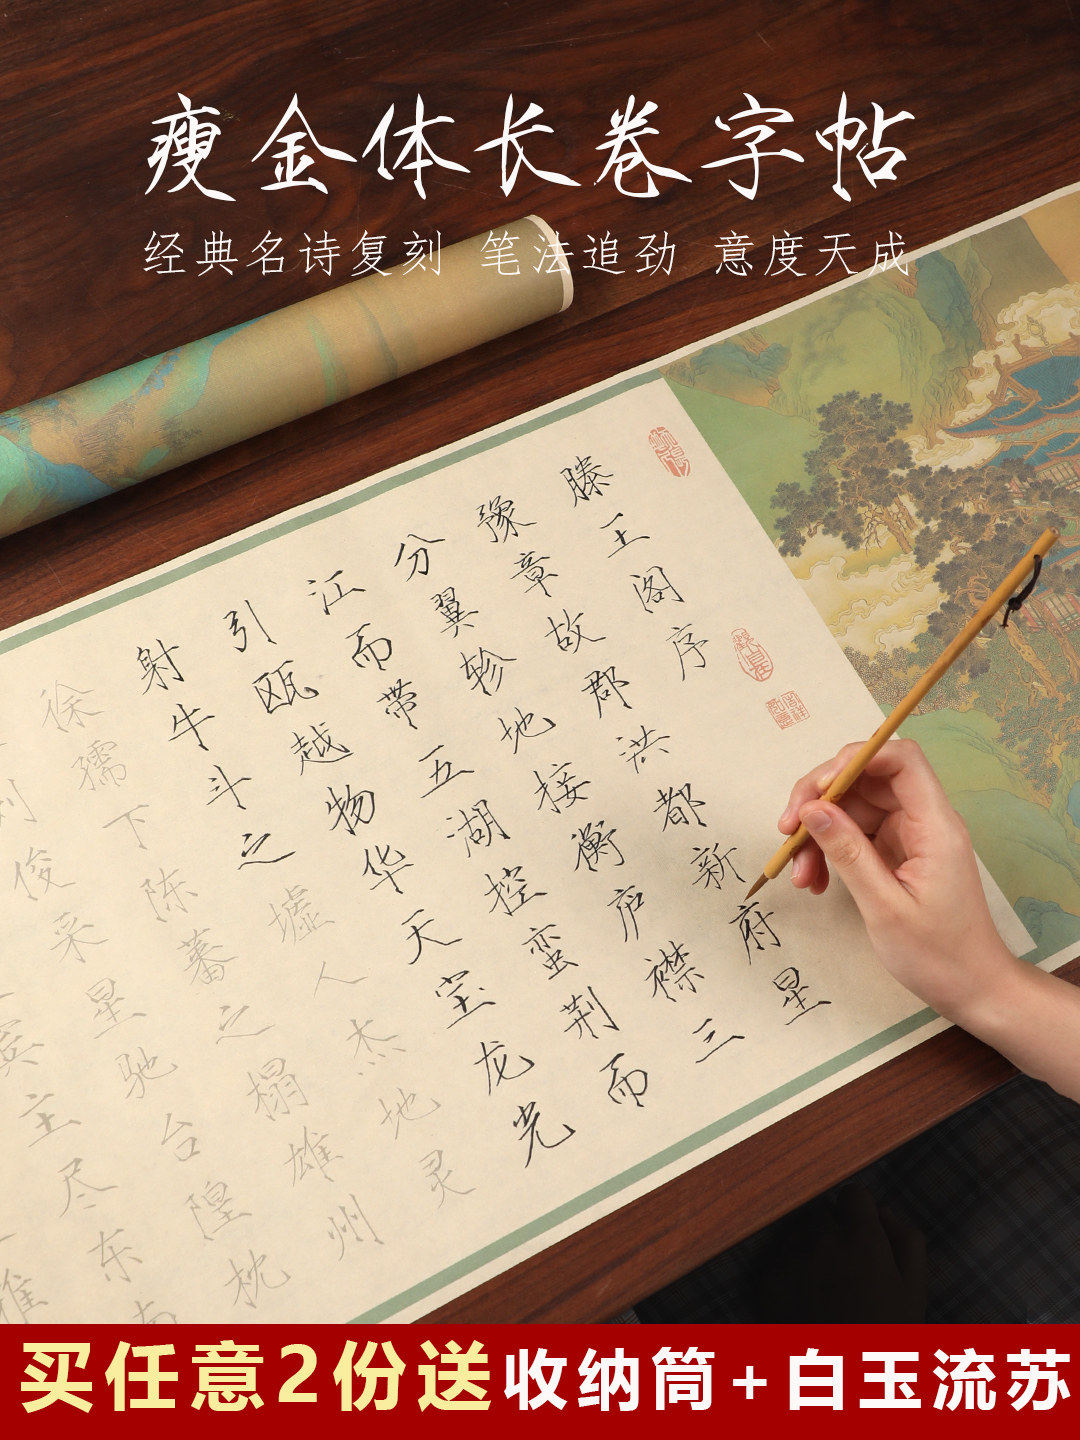 瘦金体长卷字帖
经典名诗复刻 笔法追劲 意度天成
滕王阁序
豫章故郡洪都新府星
分翼轸地接衡庐襟三
江而带五湖控蛮荆而
引瓯越物华天宝龙光
射牛斗之墟人杰地灵
徐孺下陈蕃之榻雄州
列俊采星驰台隍枕
宾主尽东南
雅
买任意2份送收纳筒+白玉流苏